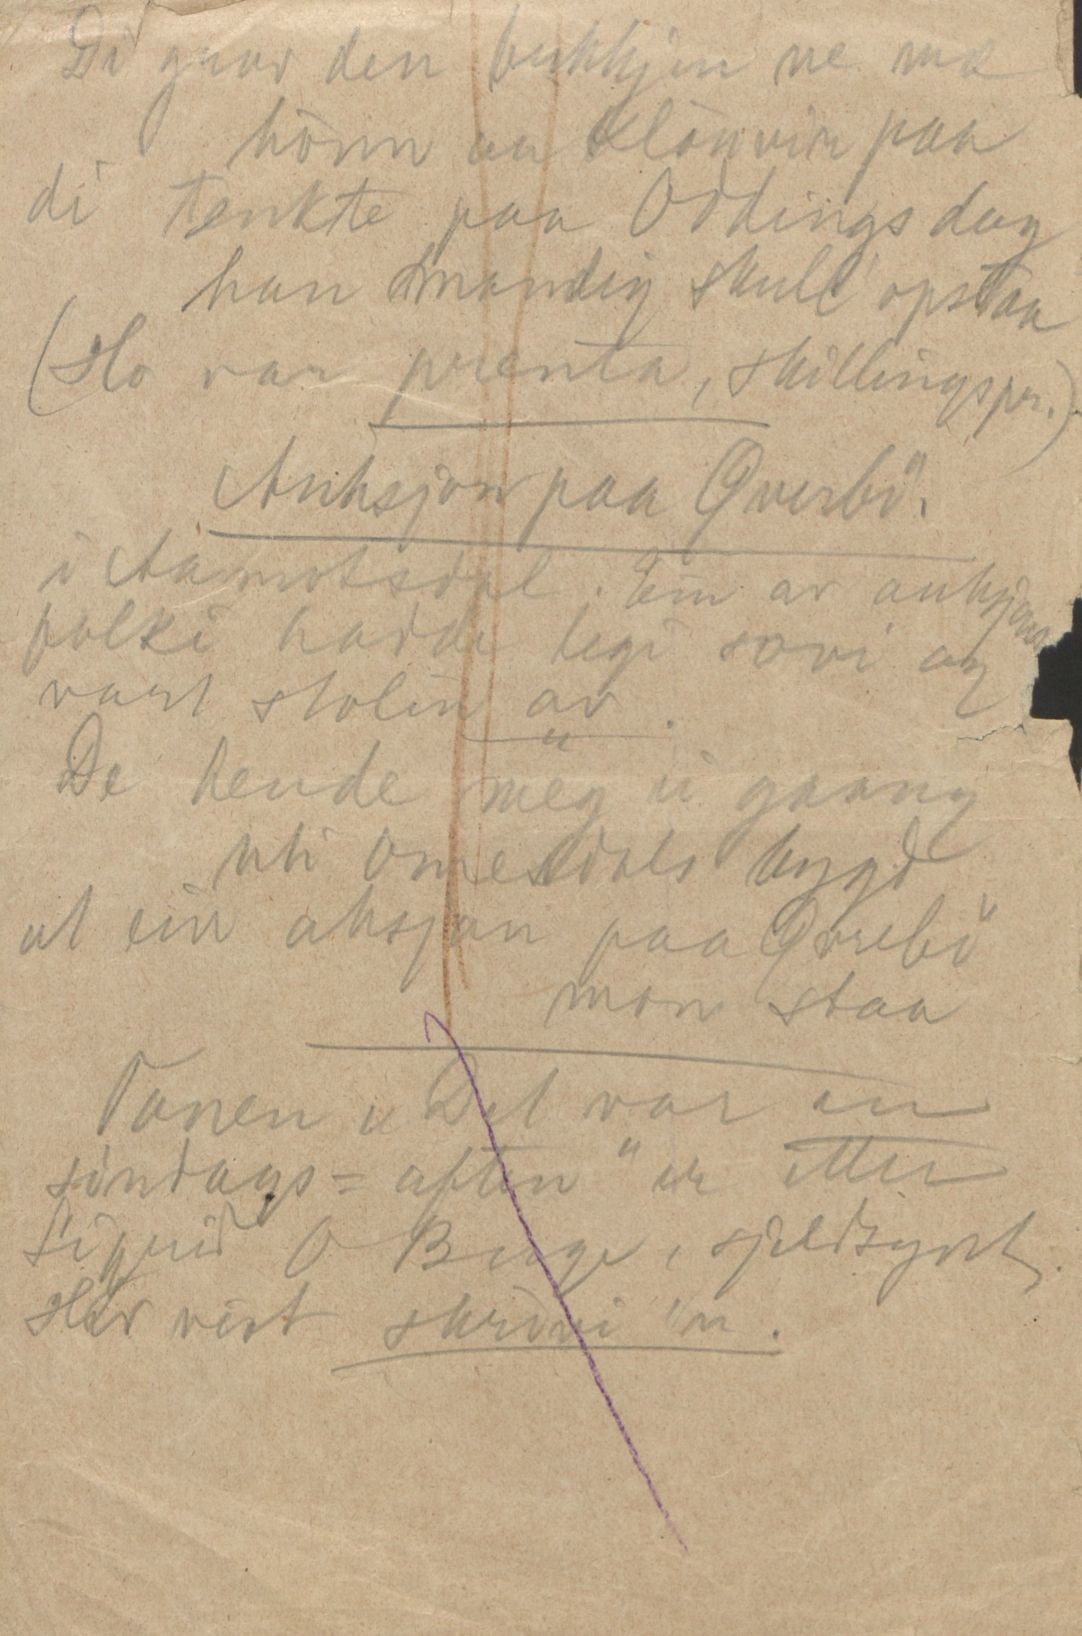 Di grov den bukkjen ne mæ
hönn aa klauvin paa
di tenkte paa Oddingsdag
han mondig skull' opstaa
(Ho var prenta, skillingspr.)
Auksjon paa Qverbö.
i Aamotsdal. Ein av auksjons
folki hadde legi sovi og
vart stolin av.
De hende meg ei gaang
uti Omesdals bygd
at ein aksjon paa Qvrebö
mon staa
Tonen "Det var en
söndags=aften" er etter
Sigurd O Buge, sjeldsynt.
Hev visst skrivi 'n.